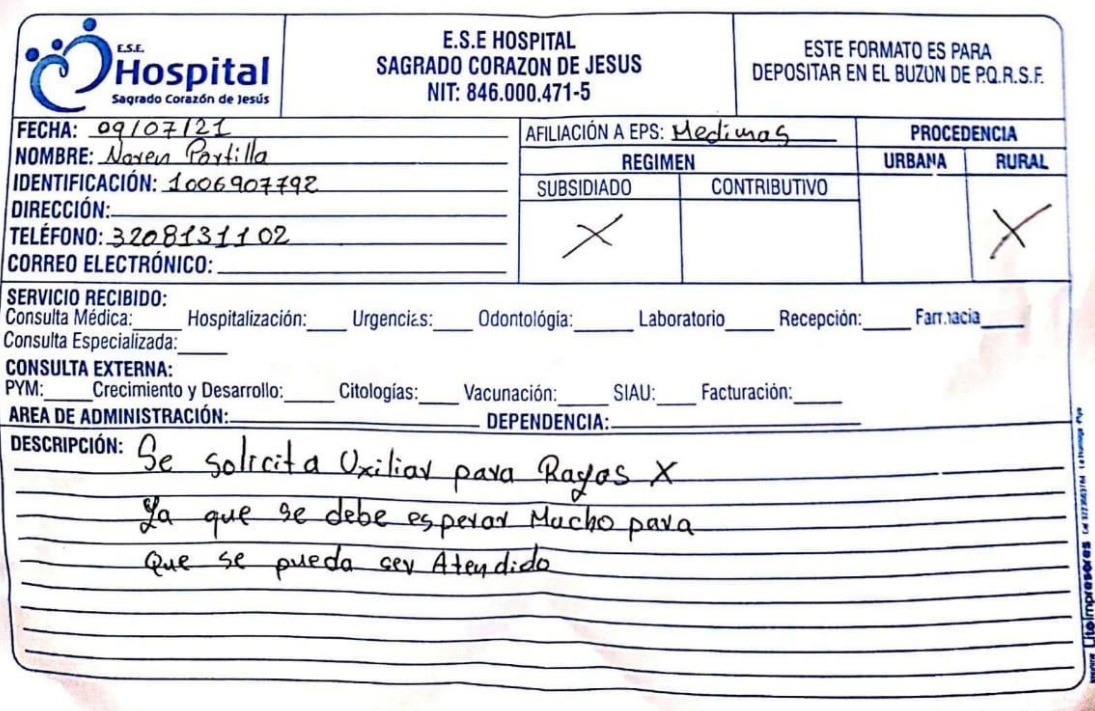 E.S.E.
Hospital
Sagrado Corazón de Jesús
E.S.E HOSPITAL
SAGRADO CORAZON DE JESUS
NIT: 846.000.471-5
ESTE FORMATO ES PARA
DEPOSITAR EN EL BUZON DE P.Q.R.S.F.
FECHA: 09/07/21
NOMBRE: Noren Portilla
IDENTIFICACIÓN: 1006907792
DIRECCIÓN:
TELÉFONO: 3208131102
CORREO ELECTRÓNICO:
AFILIACIÓN A EPS: Medimas
PROCEDENCIA
REGIMEN
URBANA RURAL
SUBSIDIADO CONTRIBUTIVO
X X
SERVICIO RECIBIDO:
Consulta Médica: Hospitalización: Urgencias: Odontológia: Laboratorio Recepción: Farmacia
Consulta Especializada:
CONSULTA EXTERNA:
PYM: Crecimiento y Desarrollo: Citologías: Vacunación: SIAU: Facturación:
AREA DE ADMINISTRACIÓN: DEPENDENCIA:
DESCRIPCIÓN: Se solicita Uxiliar para Rayos X
Ya que se debe esperar Mucho para
Que se pueda ser Atendido
Litoimpresores